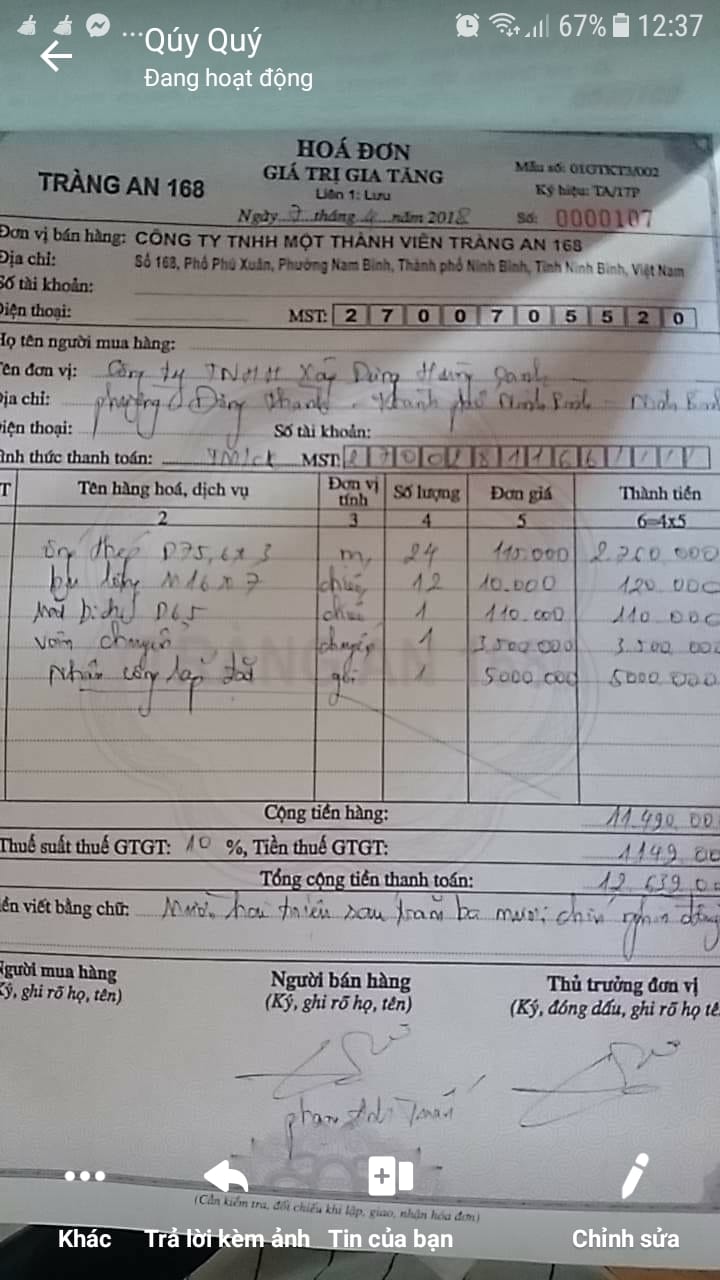 67% 12:37
Qúy Quý
Đang hoạt động
HOÁ ĐƠN
GIÁ TRỊ GIA TĂNG
Mẫu số: 01GTKT3/002
TRÀNG AN 168
Liên 1: Lưu
Ký hiệu: TA/17P
Ngày 7 tháng 4 năm 2018
Số: 0000107
Đơn vị bán hàng: CÔNG TY TNHH MỘT THÀNH VIÊN TRÀNG AN 168
Địa chỉ: Số 168, Phố Phú Xuân, Phường Nam Bình, Thành phố Ninh Bình, Tỉnh Ninh Bình, Việt Nam
Số tài khoản:
Điện thoại: MST: 2 7 0 0 7 0 5 5 2 0
Họ tên người mua hàng:
Tên đơn vị: Công ty TNHH Xây Dựng
Địa chỉ: phường Đông Thành - thành phố Ninh Bình - Ninh Bình
Điện thoại: Số tài khoản:
Hình thức thanh toán: TM/CK MST: 2 7 0 0 2 8 1 1 6 6
T Tên hàng hoá, dịch vụ Đơn vị tính Số lượng Đơn giá Thành tiền
2 3 4 5 6=4x5
ống thép D75,6 x 3 m 24 115.000 2.760.000
bu lông M16 x 7 chiếc 12 10.000 120.000
bích D65 chiếc 1 110.000 110.000
chuyển chuyến 1 3.500.000 3.500.000
Nhân công lắp đặt gói 1 5000.000 5000.000
Cộng tiền hàng: 11.490.00
Thuế suất thuế GTGT: 10 %, Tiền thuế GTGT: 1149.00
Tổng cộng tiền thanh toán: 12.639.0
ền viết bằng chữ: Mười hai triệu sáu trăm ba mươi chín nghìn đồng
Người mua hàng Người bán hàng Thủ trưởng đơn vị
Ký, ghi rõ họ, tên) (Ký, ghi rõ họ, tên) (Ký, đóng dấu, ghi rõ họ tê
Phan Anh Tuấn
(Cần kiểm tra, đối chiếu khi lập, giao, nhận hóa đơn)
Khác Trả lời kèm ảnh Tin của bạn Chỉnh sửa